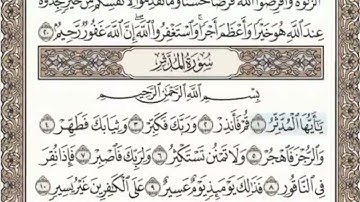 الزَّكَوٰةَ وَأَقْرِضُوا۟ ٱللَّهَ قَرْضًا حَسَنًا وَمَا تُقَدِّمُوا۟ لِأَنفُسِكُم مِّنْ خَيْرٍ تَجِدُوهُ
عِندَ ٱللَّهِ هُوَ خَيْرًا وَأَعْظَمَ أَجْرًا وَٱسْتَغْفِرُوا۟ ٱللَّهَ إِنَّ ٱللَّهَ غَفُورٌ رَّحِيمٌ ٢٠
سُورَةُ المُدَّثِّرِ
بِسْمِ ٱللَّهِ ٱلرَّحْمَٰنِ ٱلرَّحِيمِ
يَٰٓأَيُّهَا ٱلْمُدَّثِّرُ ١ قُمْ فَأَنذِرْ ٢ وَرَبَّكَ فَكَبِّرْ ٣ وَثِيَابَكَ فَطَهِّرْ ٤
وَٱلرُّجْزَ فَٱهْجُرْ ٥ وَلَا تَمْنُن تَسْتَكْثِرُ ٦ وَلِرَبِّكَ فَٱصْبِرْ ٧ فَإِذَا نُقِرَ
فِى ٱلنَّاقُورِ ٨ فَذَٰلِكَ يَوْمَئِذٍ يَوْمٌ عَسِيرٌ ٩ عَلَى ٱلْكَٰفِرِينَ غَيْرُ يَسِيرٍ ١٠